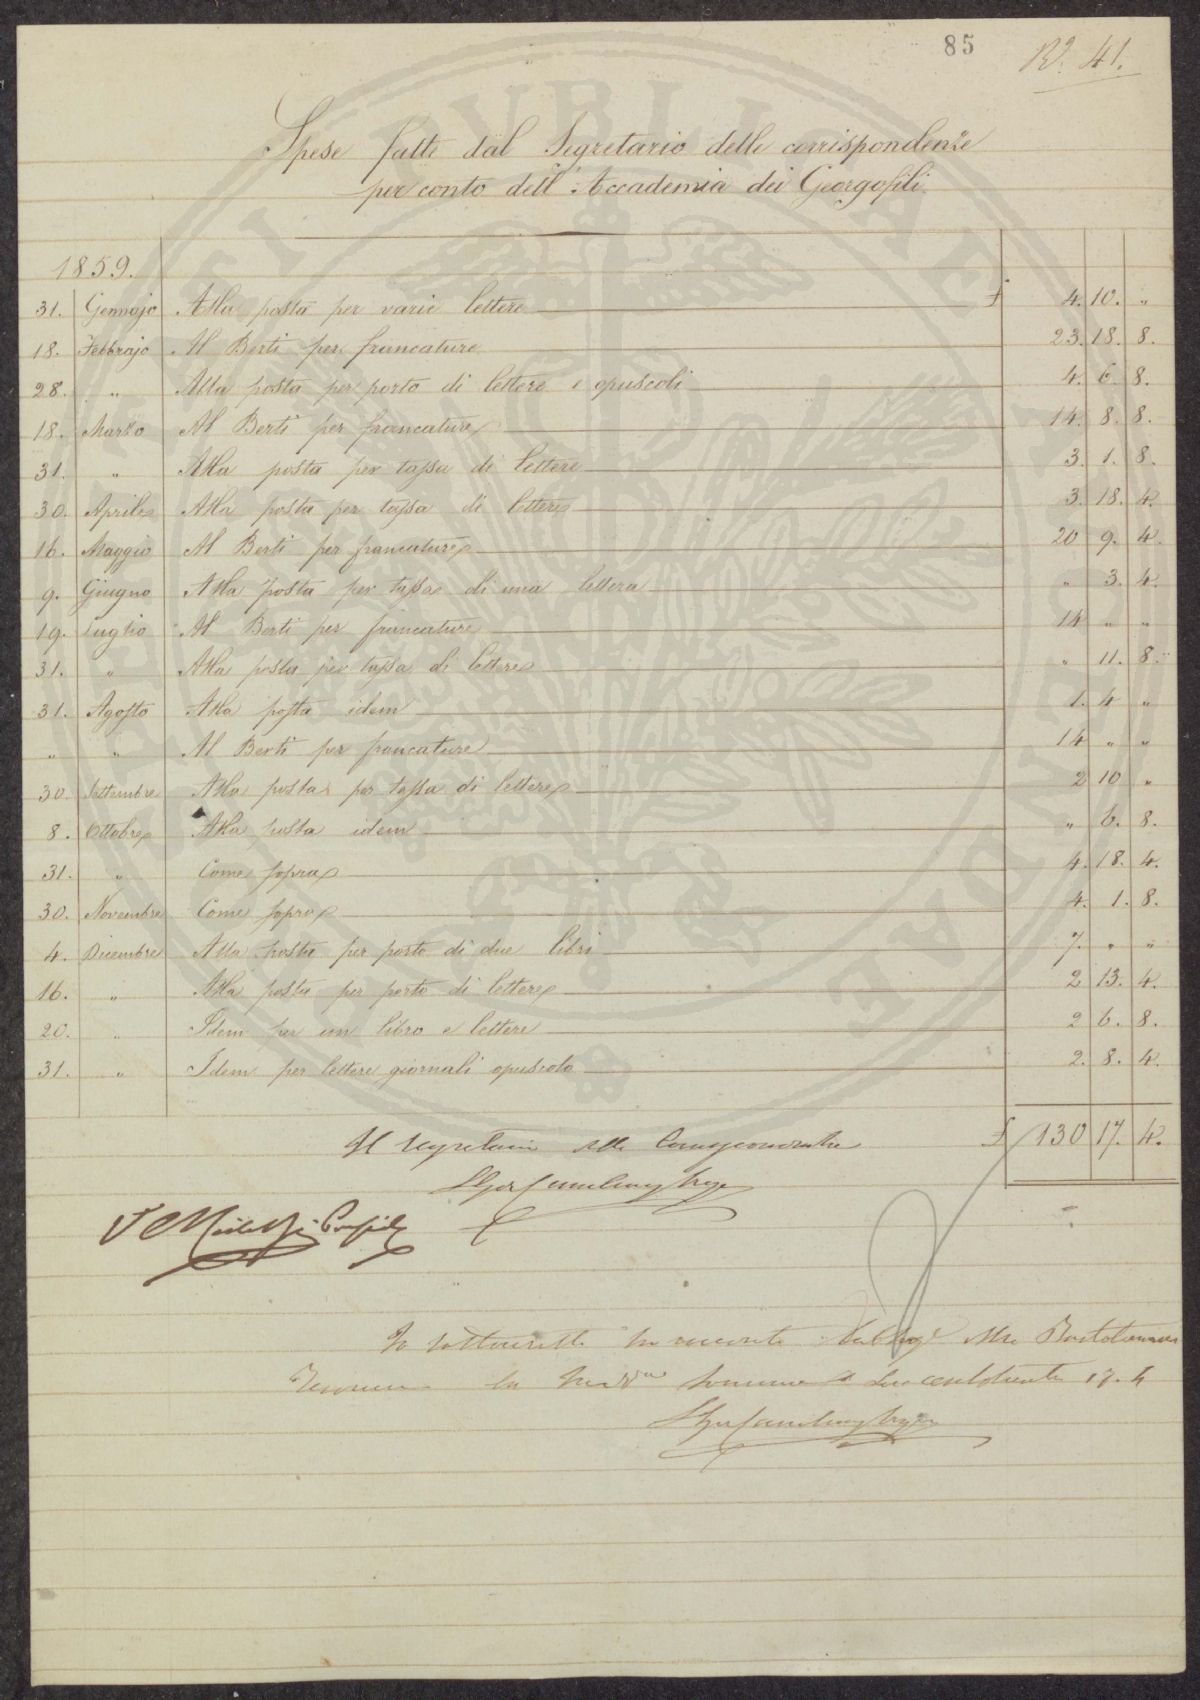 85
R.º 41.
Spese fatte dal Segretario delle corrispondenze
per conto dell'Accademia dei Georgofili
1859.
31. Gennajo Alla posta per varie lettere £ 4. 10. "
18. Febbrajo Al Berti per francature 23. 18. 8.
28. " Alla posta per porto di lettere e opuscoli 4. 6. 8.
18. Marzo Al Berti per francature 14. 8. 8.
31. " Alla posta per tassa di lettere 3. 1. 8.
30. Aprile Alla posta per tassa di lettere 3. 18. 4.
16. Maggio Al Berti per francature 20 9. 4.
9. Giugno Alla posta per tassa di una lettera " 3. 4.
19. Luglio Al Berti per francature 14 " "
31. " Alla posta per tassa di lettere " 11. 8.
31. Agosto Alla posta idem 1. 4 "
" " Al Berti per francature 14 " "
30. Settembre Alla posta per tassa di lettere 2 10 "
8. Ottobre Alla posta idem " 6. 8.
31. " Come sopra 4. 18. 4.
30. Novembre Come sopra 4. 1. 8.
4. Dicembre Alla posta per porto di due libri 7. " "
16. " Alla posta per porto di lettere 2 13. 4.
20. " Idem per un libro e lettere 2 6. 8.
31. " Idem per lettere giornali opuscolo 2. 8. 4.
£ 130 17. 4.
Il Segretario delle Corrispondenze
Io sottoscritto ho ricevuto
la somma 17. 4